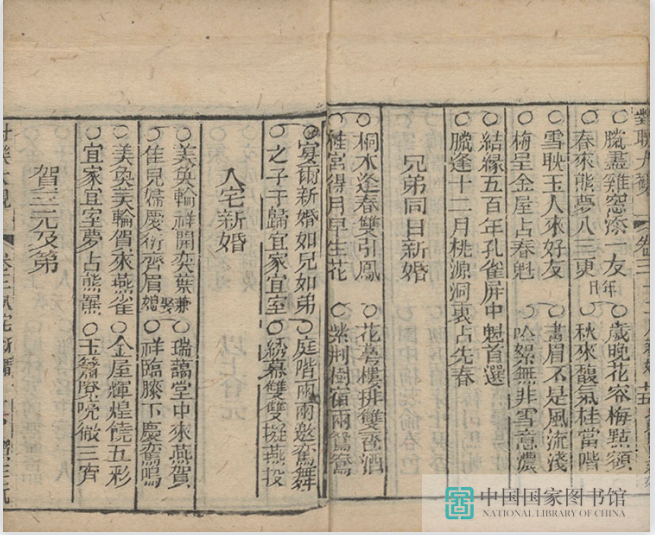 ○臘盡雞窓添一友 ○歲晚花容梅點額
春來熊夢八三更 秋來馥氣桂當階
○雪映玉人來好友 ○畵眉不是風流淺
梅呈金屋占春魁 吟絮無非雪意濃
○結緣五百年孔雀屏中魁首選
臘逢十二月桃源洞裏占先春
兄弟同日新婚
○桐水逢春雙引鳳 ○花萼樓排雙喜酒
桂宮得月早生花 紫荆樹宿兩鴛鴦
○宴爾新婚如兄如弟 ○庭階兩兩遨鸞舞
之子于歸宜家宜室 綉幕雙雙擬燕投
入宅新婚
○美奐輪祥開奕葉兼娶 ○瑞靄堂中來燕賀
佳兒儷慶衍齊眉婚 祥臨膝下慶鸞鳴
○美奐美輪賀來燕雀 ○金屋輝煌饒五彩
宜家宜室夢占熊羆 玉簫嘹喨徹三宵
賀三元及第
中国国家图书馆
NATIONAL LIBRARY OF CHINA